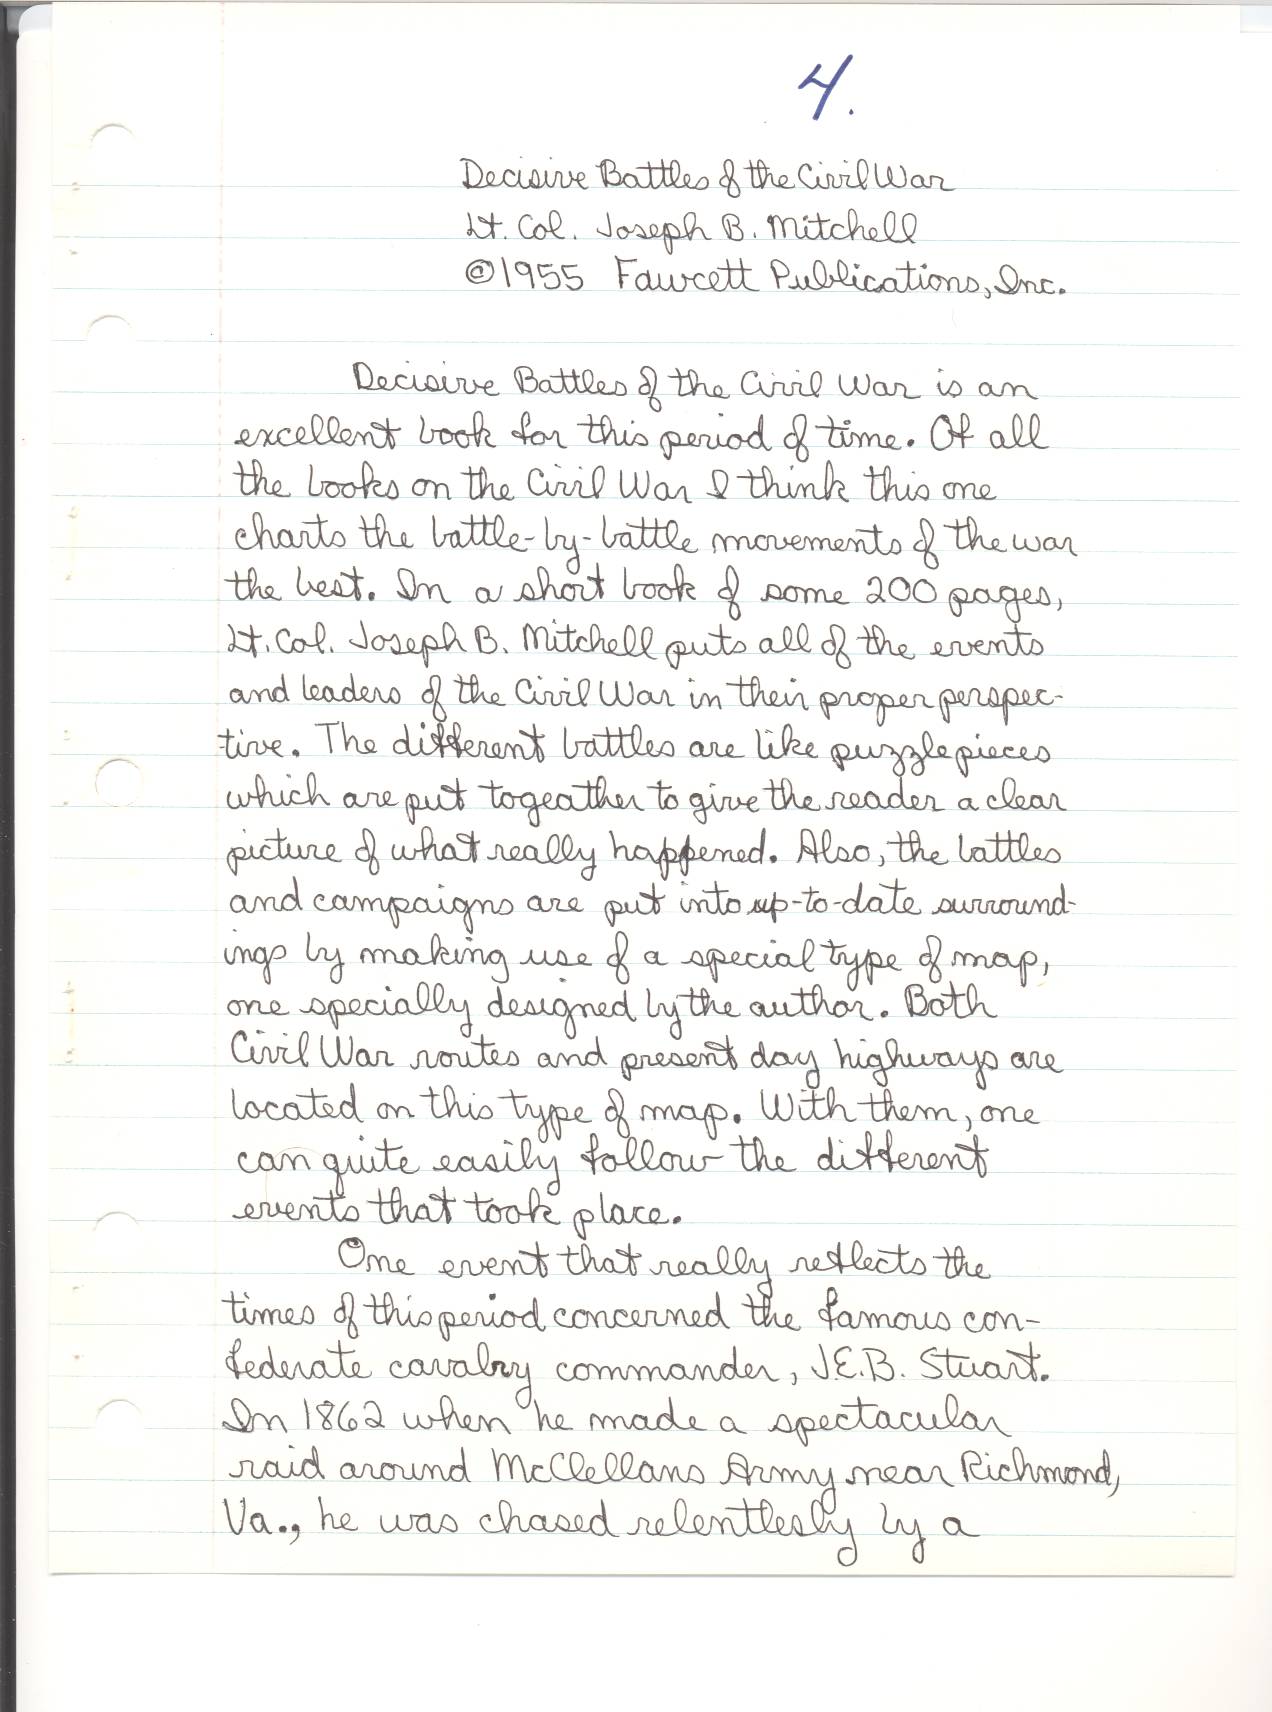 4.
Decisive Battles of the Civil War
Lt. Col. Joseph B. Mitchell
©1955 Fawcett Publications, Inc.
Decisive Battles of the Civil War is an
excellent book for this period of time. Of all
the books on the Civil War I think this one
charts the battle-by-battle movements of the war
the best. In a short book of some 200 pages,
Lt. Col. Joseph B. Mitchell puts all of the events
and leaders of the Civil War in their proper perspec-
tive. The different battles are like puzzle pieces
which are put togeather to give the reader a clear
picture of what really happened. Also, the battles
and campaigns are put into up-to-date surround-
ings by making use of a special type of map,
one specially designed by the author. Both
Civil War routes and present day highways are
located on this type of map. With them, one
can quite easily follow the different
events that took place.
One event that really reflects the
times of this period concerned the famous con-
federate cavalry commander, J.E.B. Stuart.
In 1862 when he made a spectacular
raid around McClellans Army near Richmond,
Va., he was chased relentlesly by a